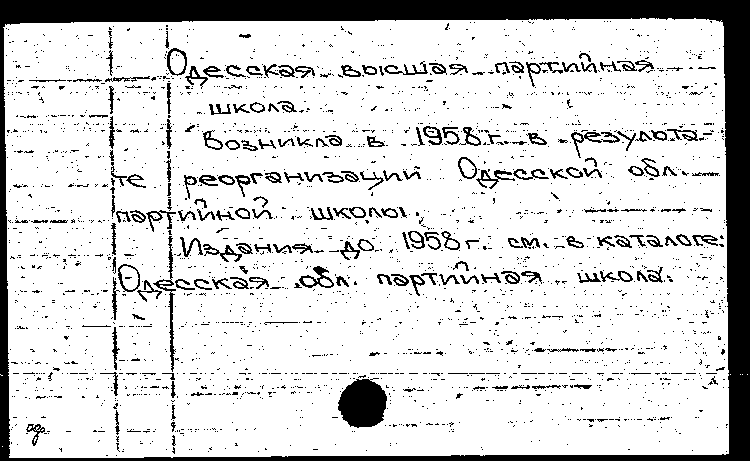 Одесская высшая партийная
школа.
Возникла в 1958 г. в результа-
те реорганизации Одесской обл.
партийной школы.
Издания до 1958 г. см. в каталоге:
Одесская обл. партийная школа.